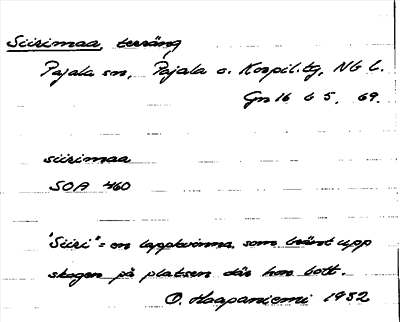 Siirimaa, terräng
Pajala sn, Pajala o. Korpil. tg, Nb l.
Gn 16 b 5, 69.
siirimaa
SOA 460
"Siiri" = en lappkvinna som bränt upp
skogen på platsen där hon bott.
O. Haapaniemi 1932